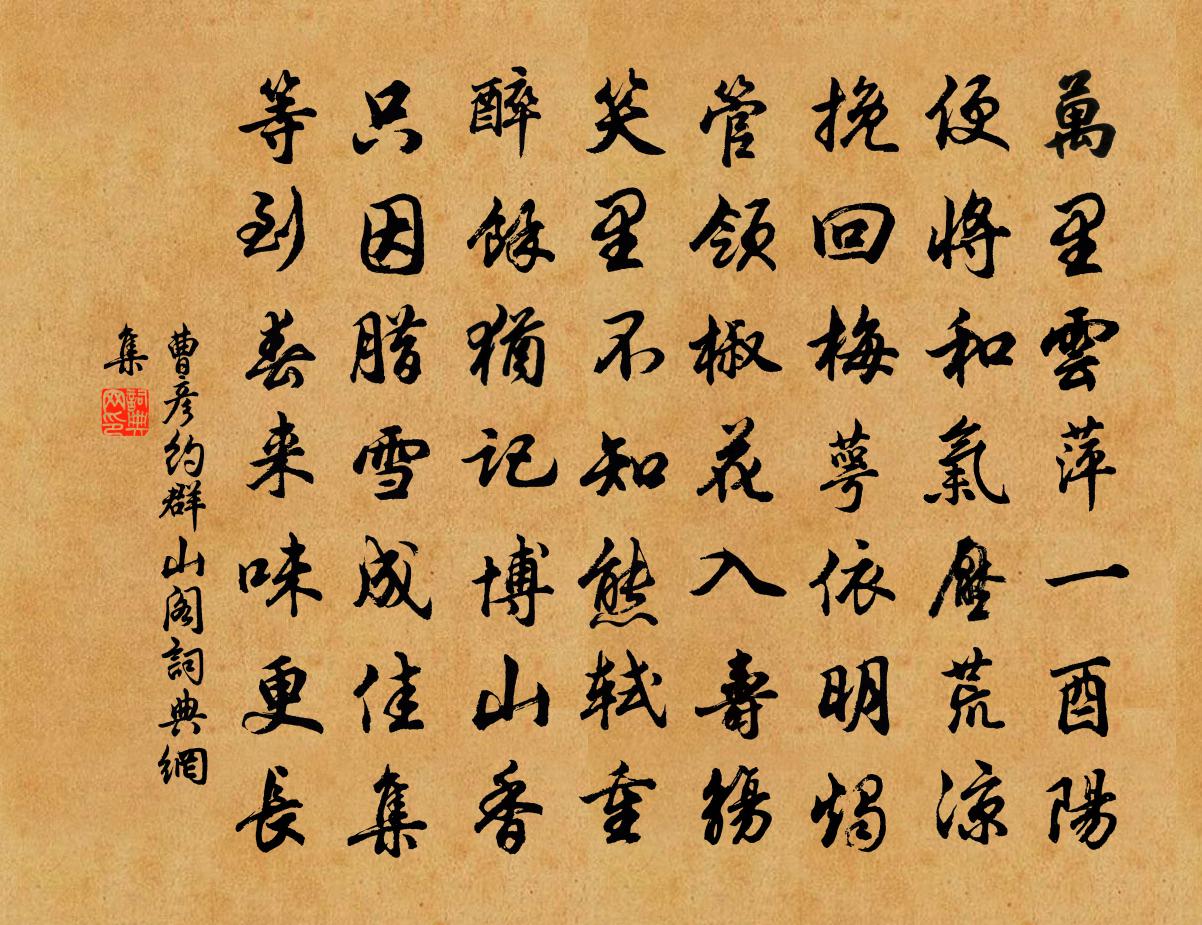 萬里雲萍一酉陽
便將和氣壓荒涼
挽回梅萼依明燭
管領椒花入壽觴
笑里不知熊軾重
醉餘猶記博山香
只因腊雪成佳集
等到春来味更長
曹彦約群山阁詞典網
集
詞典网印